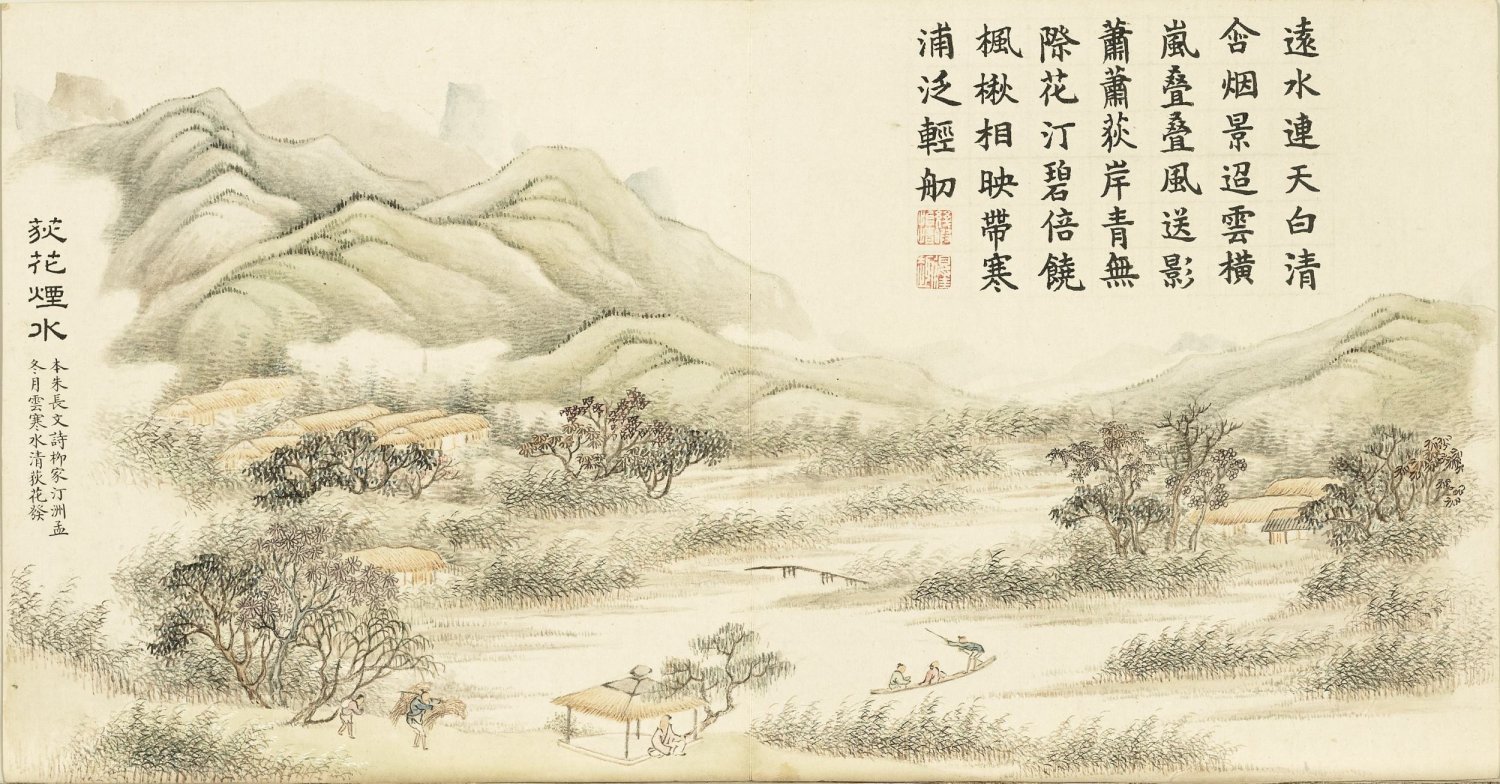 遠水連天白清
含烟景迢雲橫
嵐叠叠風送影
蕭蕭荻岸青無
際花汀碧倍饒
楓楸相映帶寒
浦泛輕舠
荻花煙水
本朱長文詩柳家汀洲孟
冬月雲寒水清荻花發